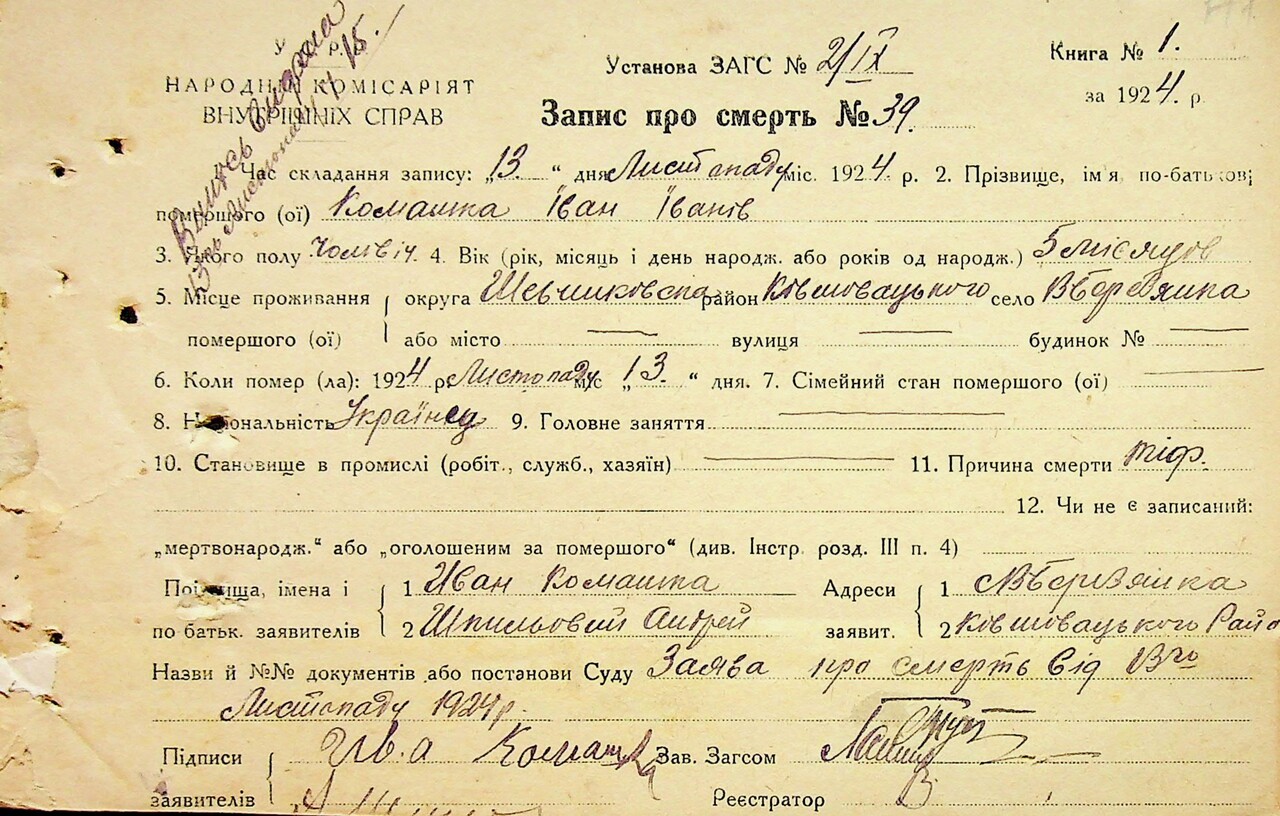 У р.
НАРОДНИЙ КОМІСАРІЯТ
ВНУТРІШНІХ СПРАВ
Випись видана
13го Листопаду 4 15.
Установа ЗАГС № 2/IX
Книга № 1.
за 1924. р.
Запис про смерть № 39.
Час складання запису: „13“ дня Листопаду міс. 1924. р. 2. Прізвище, ім'я, по-батькові
помершого (ої) Комашка Іван Іванів
3. Якого полу Чоловіч. 4. Вік (рік, місяць і день народж. або років од народж.) 5 місяцов
5. Місце проживання округа Шевчиковська район Ковшоватцького село В Березянка
помершого (ої) або місто вулиця будинок №
6. Коли помер (ла): 1924 р. Листопаду міс „13.“ дня. 7. Сімейний стан помершого (ої)
8. Національність Українец 9. Головне заняття
10. Становище в промислі (робіт., служб., хазяїн) 11. Причина смерти тіф.
12. Чи не є записаний:
„мертвонародж.“ або „оголошеним за помершого“ (див. Інстр. розд. III п. 4)
Прізвища, імена і 1 Иван Комашка Адреси 1 В Березянка
по батьк. заявителів 2 Шпильовий Андрей заявит. 2 Ковшоватцького Райо
Назви й №№ документів або постанови Суду Заява про смерть від 13го
Листопаду 1924 р.
Підписи Ив.а Комашка Зав. Загсом
заявителів Реєстратор